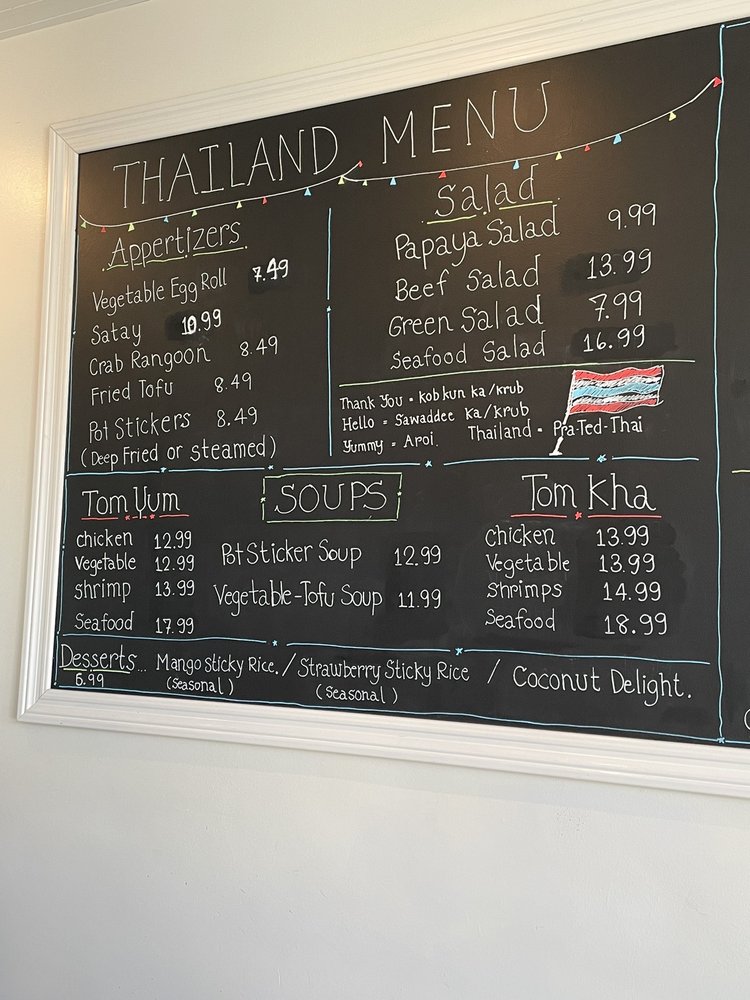 THAILAND MENU
Appertizers
Vegetable Egg Roll 7.49
Satay 10.99
Crab Rangoon 8.49
Fried Tofu 8.49
Pot Stickers 8.49
(Deep Fried or steamed)
Salad
Papaya Salad 9.99
Beef Salad 13.99
Green Salad 7.99
Seafood Salad 16.99
Thank You = Kob kun ka/krub
Hello = Sawaddee ka/krub
Yummy = Aroi. Thailand = Pra-Ted-Thai
SOUPS
Tom Yum
chicken 12.99
Vegetable 12.99
shrimp 13.99
Seafood 17.99
Pot Sticker Soup 12.99
Vegetable-Tofu Soup 11.99
Tom Kha
Chicken 13.99
Vegetable 13.99
Shrimps 14.99
Seafood 18.99
Desserts... Mango Sticky Rice. / Strawberry Sticky Rice / Coconut Delight.
(Seasonal) (Seasonal)